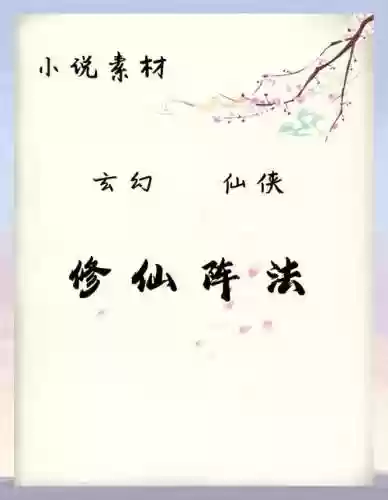 小说素材
玄幻 仙侠
修仙阵法